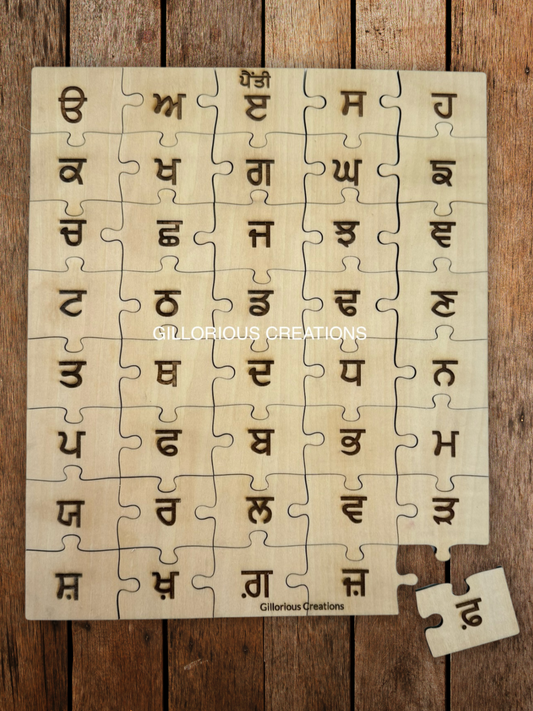 ਪੈਂਤੀ
ੳ ਅ ੲ ਸ ਹ
ਕ ਖ ਗ ਘ ਙ
ਚ ਛ ਜ ਝ ਞ
ਟ ਠ ਡ ਢ ਣ
GILLORIOUS CREATIONS
ਤ ਥ ਦ ਧ ਨ
ਪ ਫ ਬ ਭ ਮ
ਯ ਰ ਲ ਵ ੜ
ਸ਼ ਖ਼ ਗ਼ ਜ਼ ਫ਼
Gillorious Creations